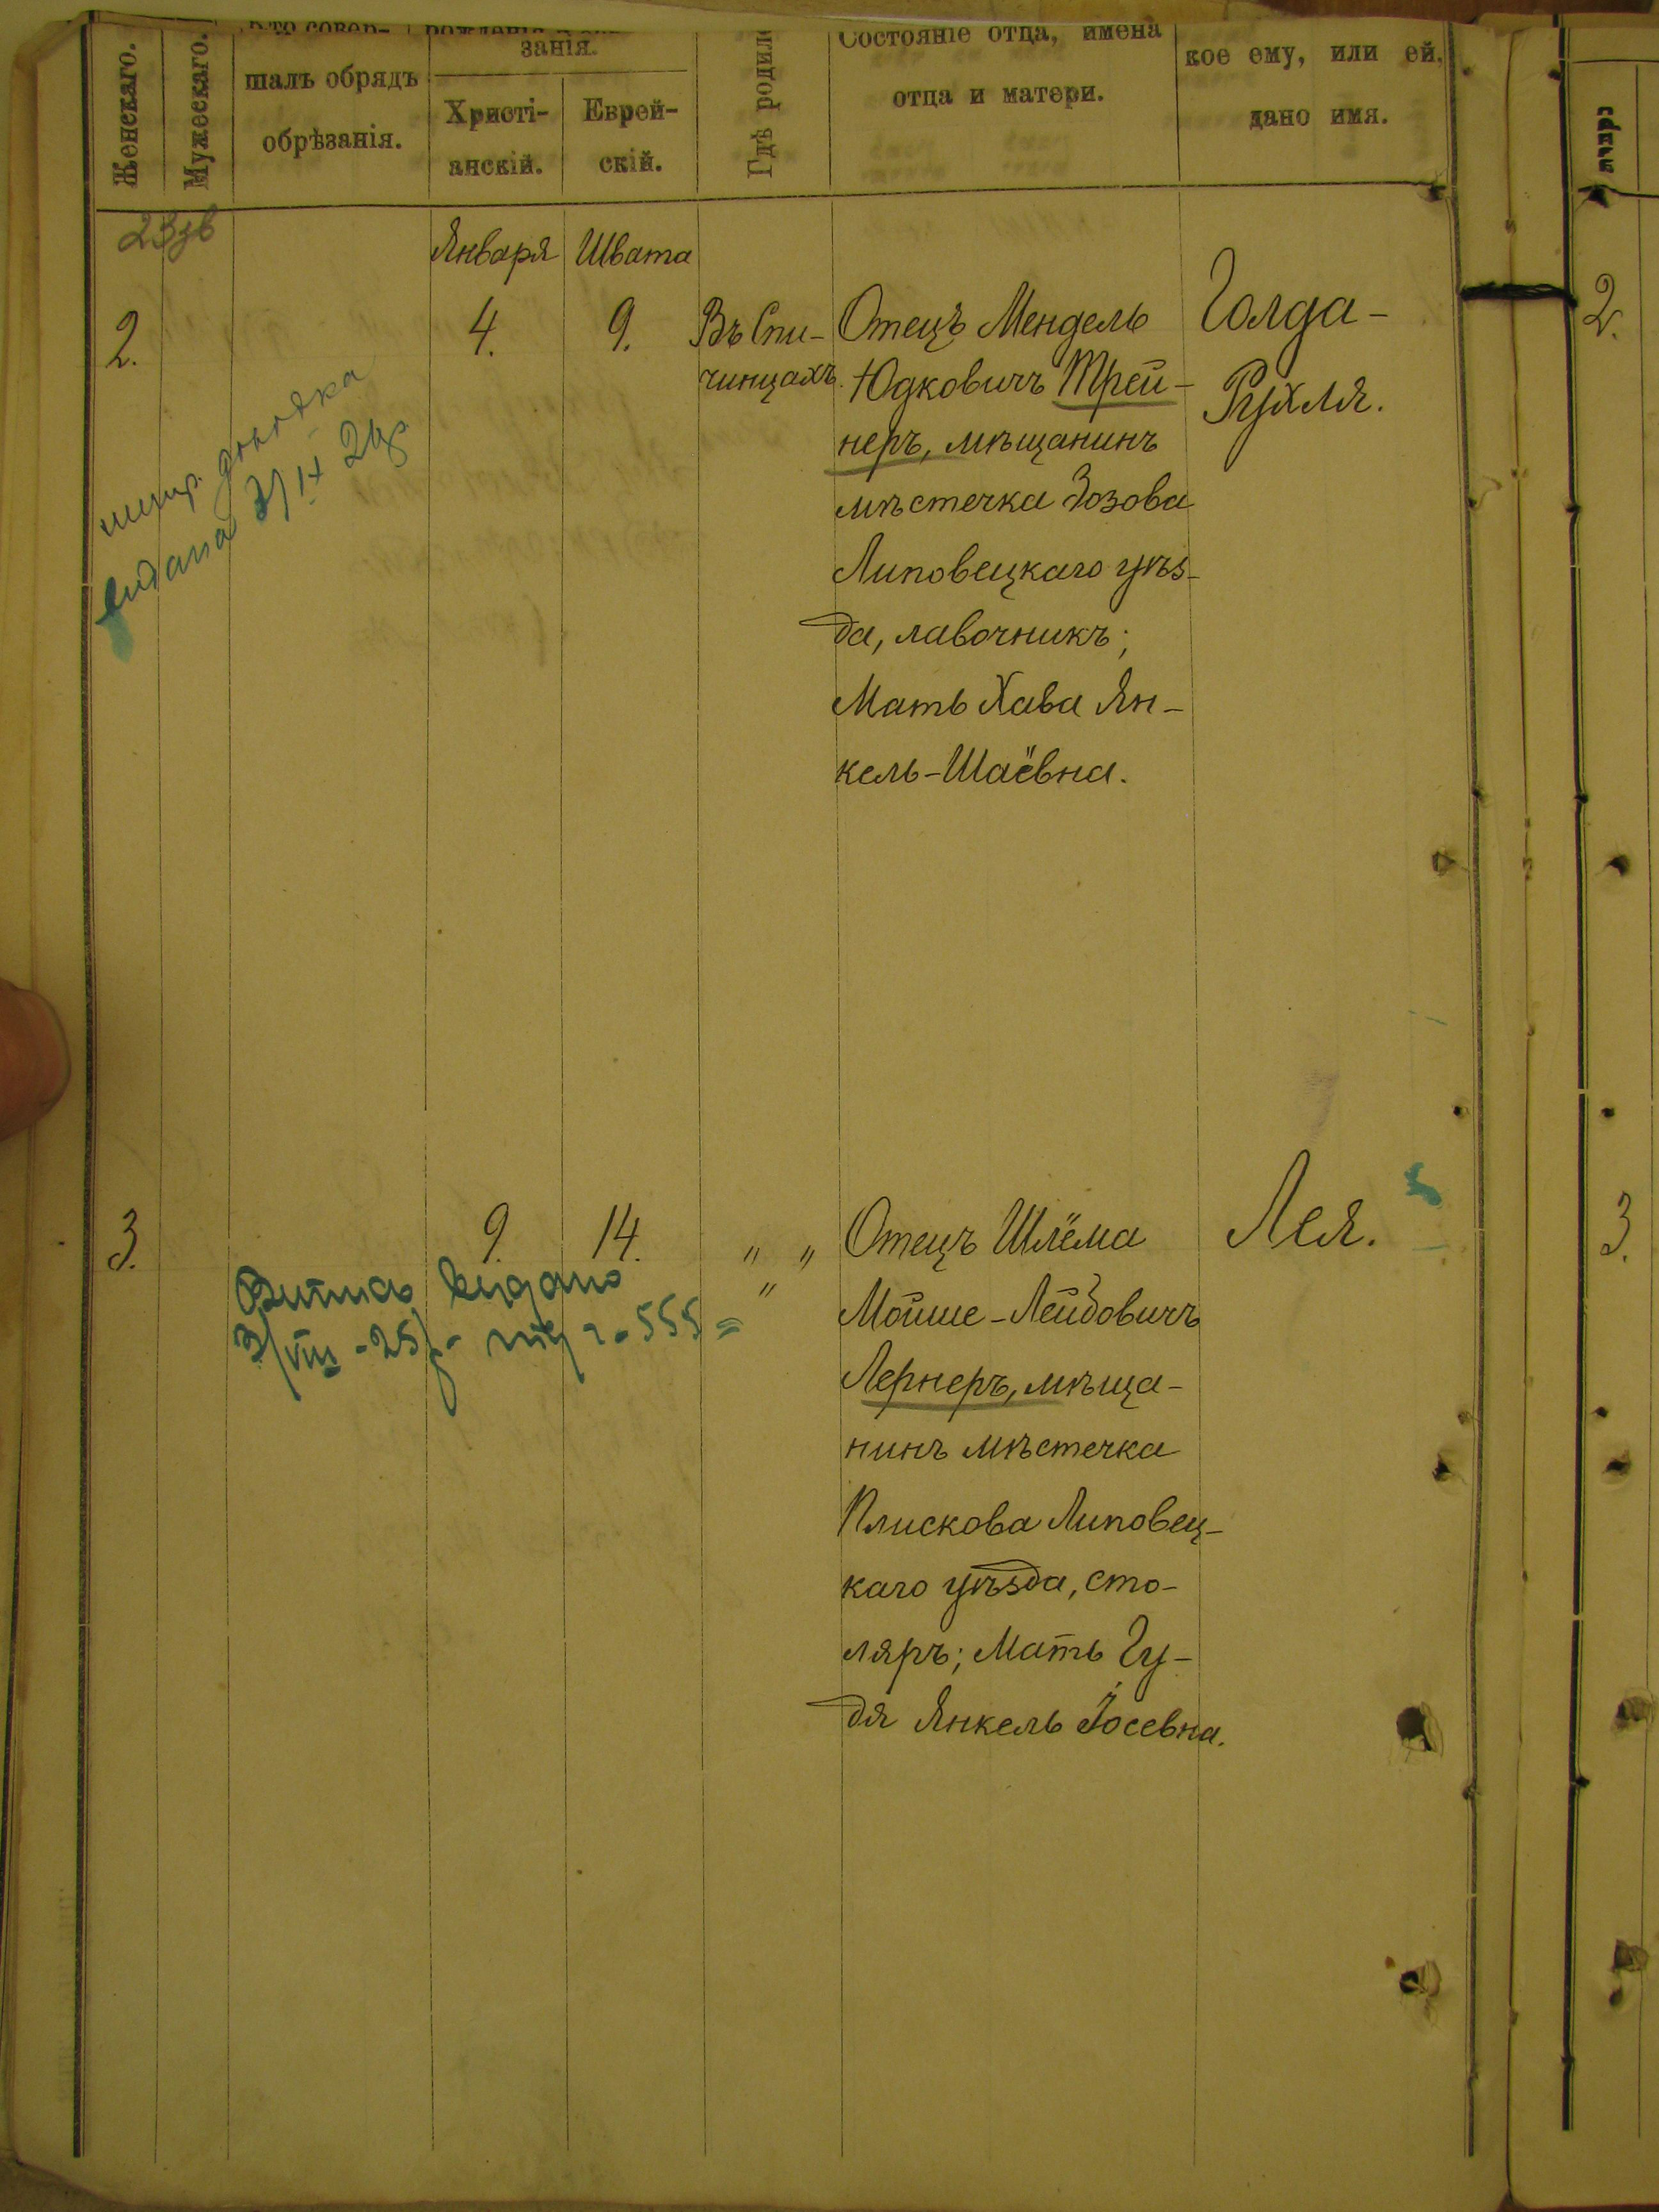 Женскаго.
Мужескаго.
Кто совер-
шалъ обрядъ
обрѣзанія.
занія.
Христі-
анскій.
Еврей-
скій.
Гдѣ родил
Состояніе отца, имена
отца и матери.
кое ему, или ей,
дано имя.
Января
Швата
2.
4.
9.
Въ Спи-
чинцахъ.
Отецъ Мендель
Юдковичъ Трей-
неръ, мѣщанинъ
мѣстечка Зозова
Липовецкаго уѣз-
да, лавочникъ;
Мать Хава Ян-
кель-Шаёвна.
Голда-
Рухля.
2.
видана
3.
9.
14.
" "
"
Отецъ Шлёма
Мойше-Лейбовичъ
Лернеръ, мѣща-
нинъ мѣстечка
Плискова Липовец-
каго уѣзда, сто-
ляръ; Мать Гу-
дя Янкель Йосевна.
Лея.
3.
Витись видано
3/VIII-25р. 555=